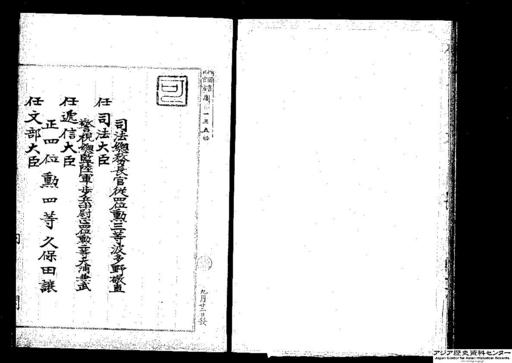 可
司法總務長官從四位勲三等波多野敬直
任司法大臣
警視總監陸軍步兵中尉正四位勲三等大浦兼武
任遞信大臣
正四位勲四等久保田讓
任文部大臣
アジア歴史資料センター
Japan Center for Asian Historical Records